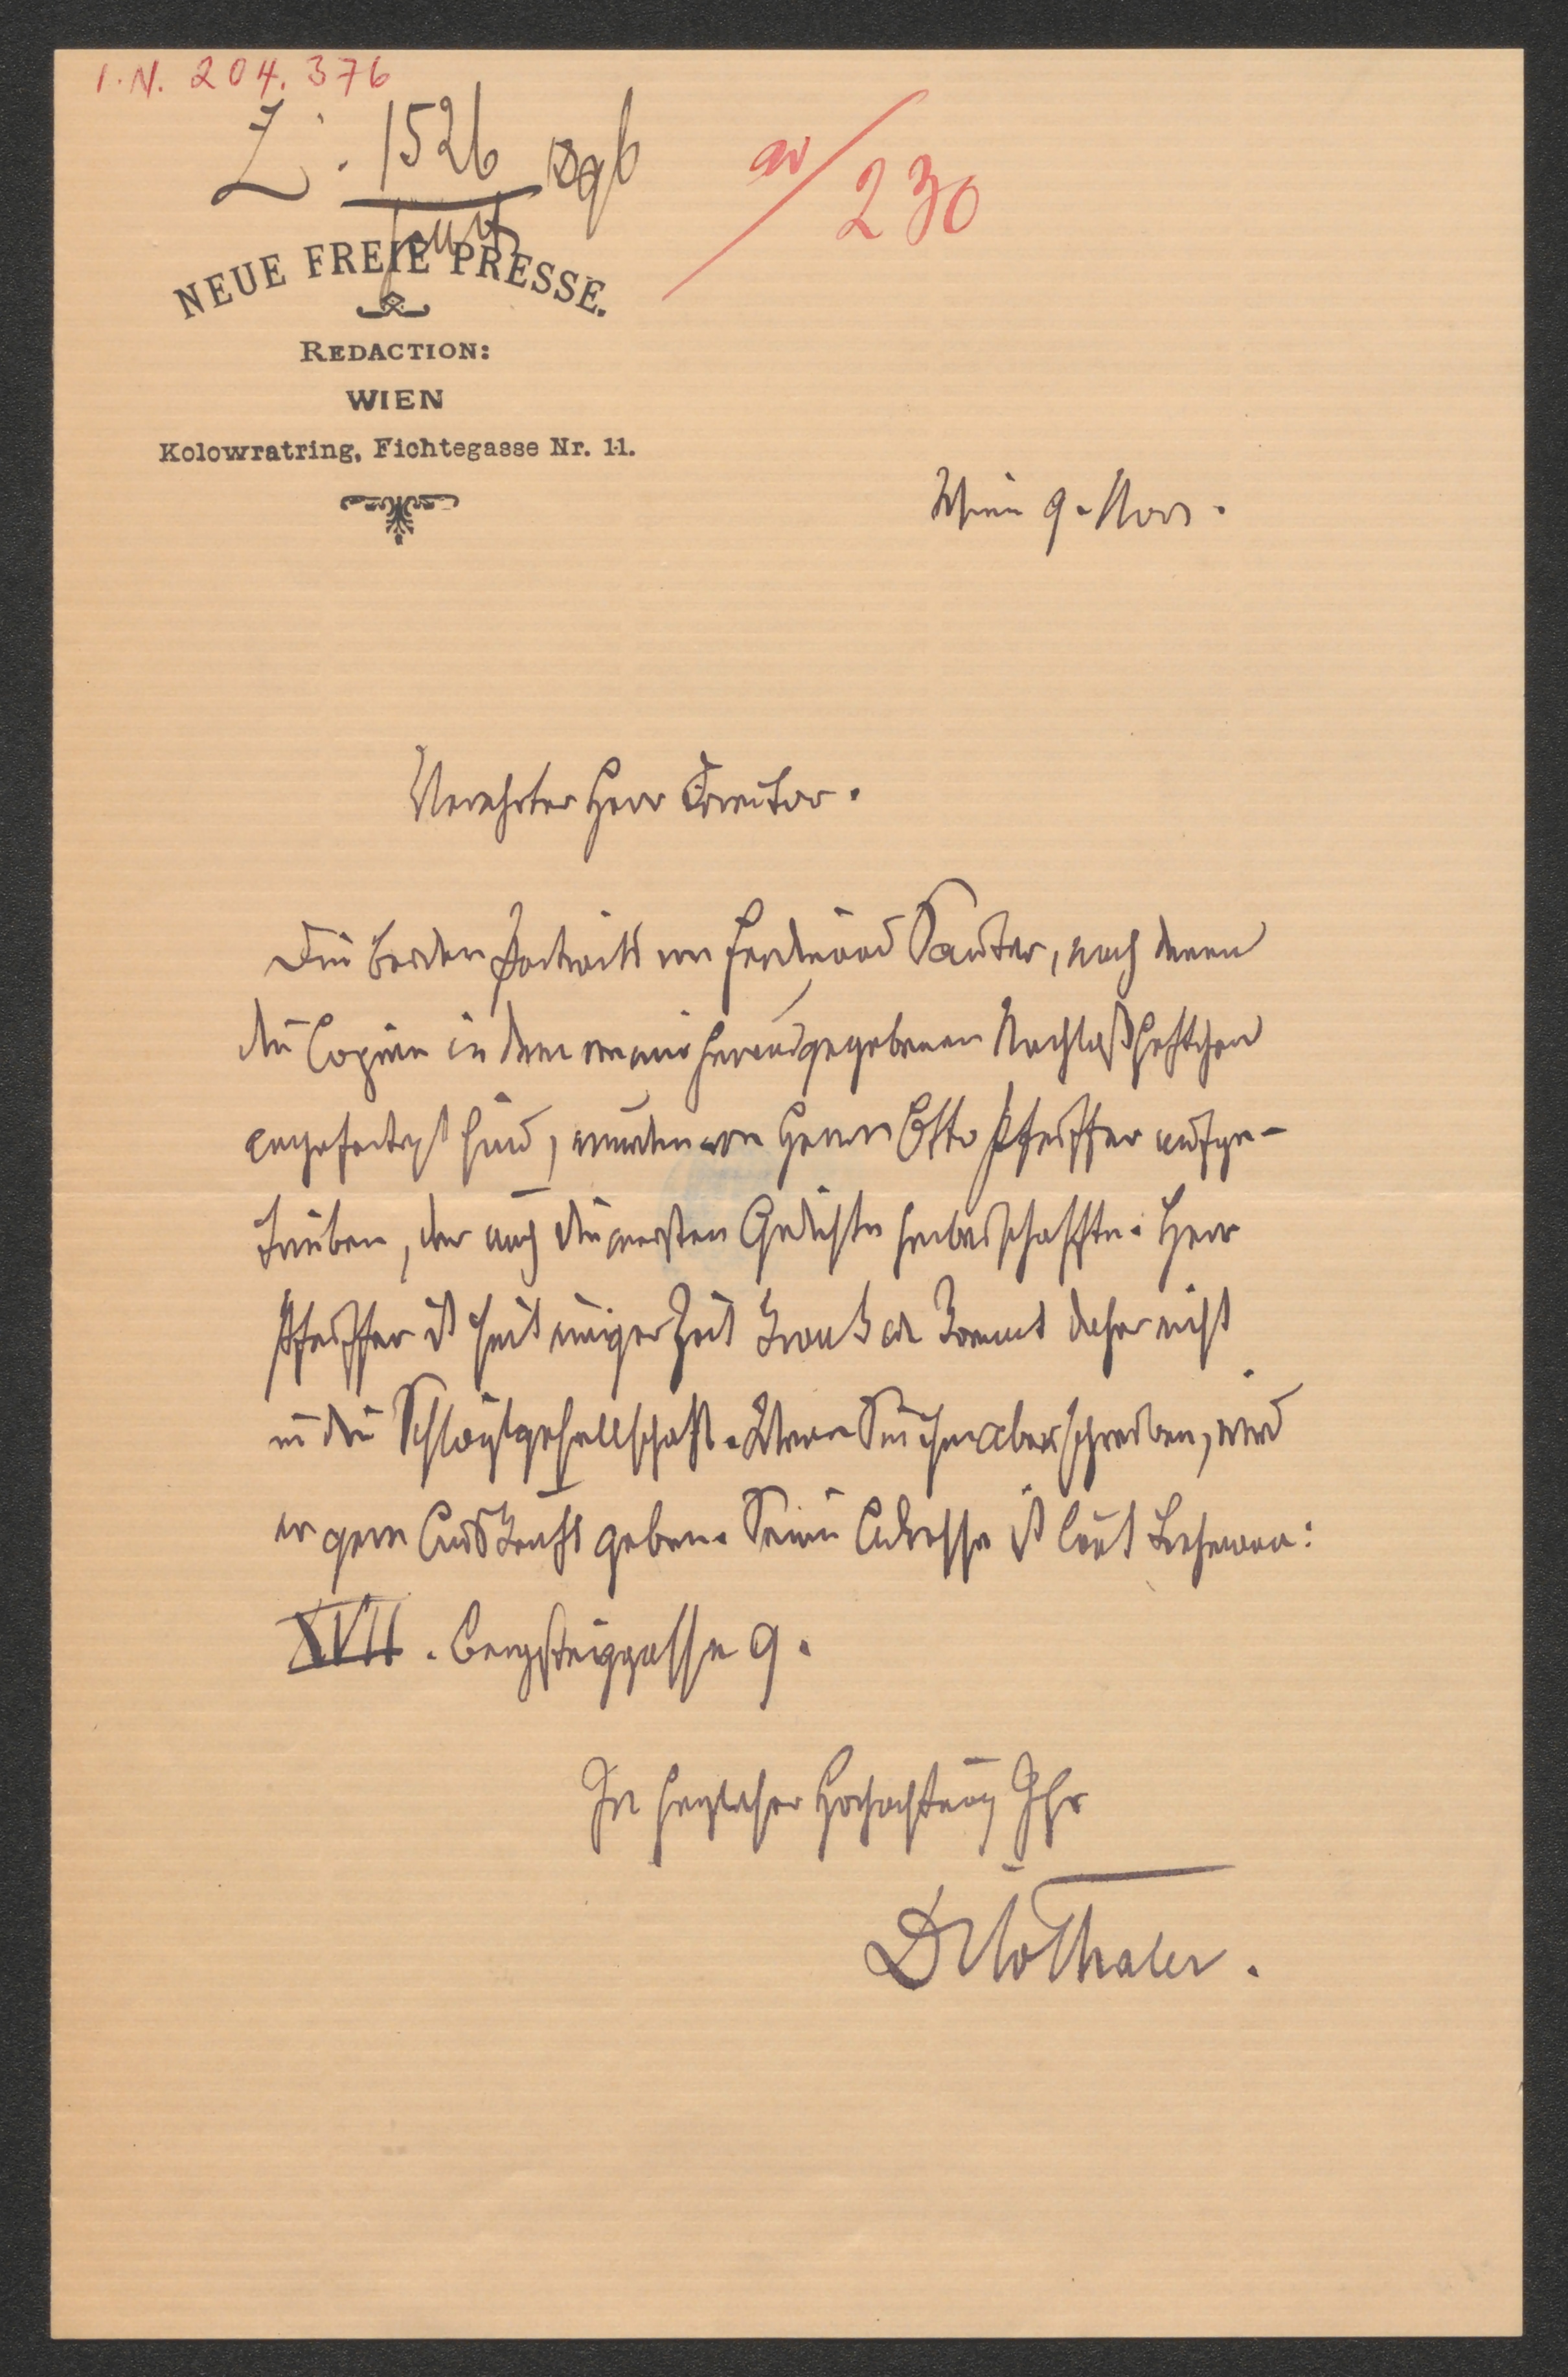 I.N. 204.376
Z. 1526
ar/230
NEUE FREIE PRESSE.
REDACTION:
WIEN
Kolowratring, Fichtegasse Nr. 11.
Wien 9. Nov.
Verehrter Herr Director.
Die beiden Portraits von Ferdinand Sauter, nach denen
die Copien in dem von mir herausgegebenen Nachlaßheftchen
angefertigt sind, wurden von Herrn Otto Pfeiffer aufge-
trieben, der auch die meisten Gedichte herbeischaffte. Herr
Pfeiffer ist seit einiger Zeit krank u kommt daher nicht
in die Schlaraffengesellschaft. Wenn Sie ihm aber schreiben, wird
er gern Auskunft geben. Seine Adresse ist laut Lehmann:
XVII. Bergsteiggasse 9.
In herzlicher Hochachtung Ihr